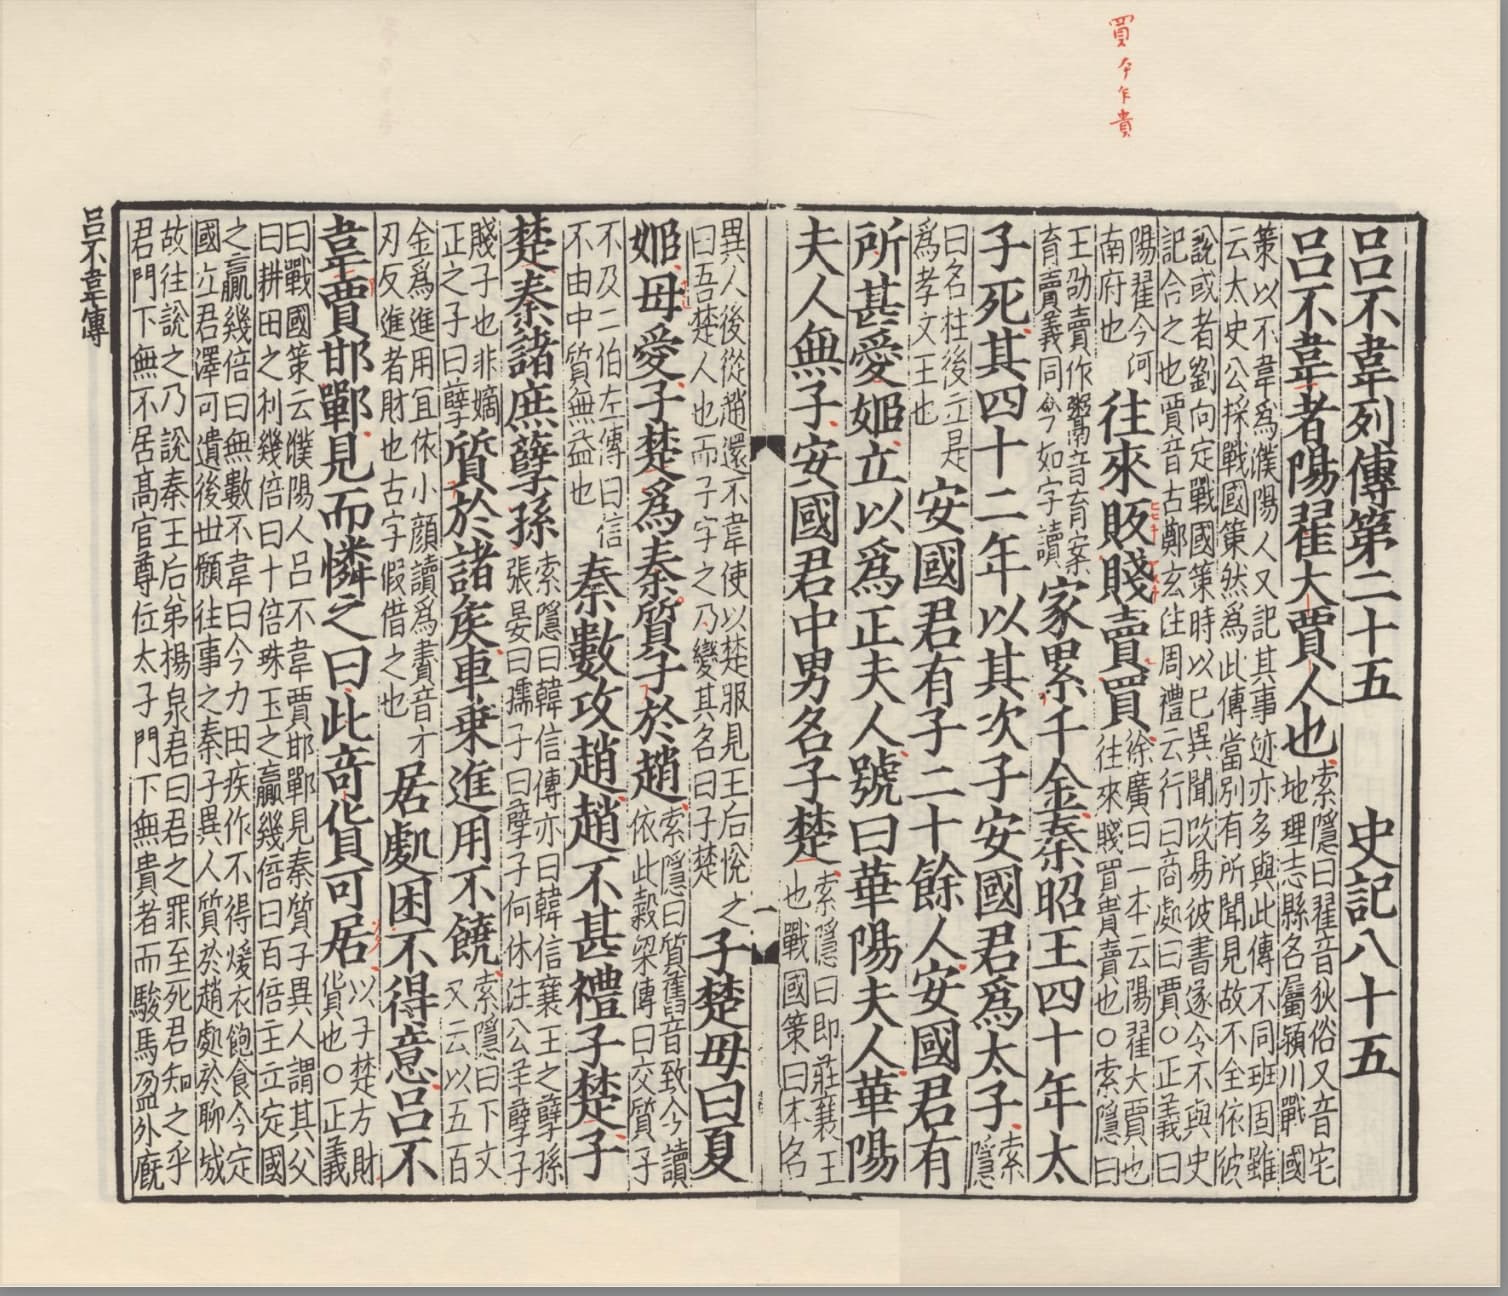 賈今乍貴
呂不韋列傳第二十五　史記八十五
呂不韋者陽翟大賈人也
索隱曰翟音狄俗又音宅
地理志縣名屬潁川戰國
策以不韋爲濮陽人又記其事迹亦多與此傳不同班固雖
云太史公採戰國策然爲此傳當別有所聞見故不全依彼
說或者劉向定戰國策時以已異聞改易彼書遂令不與史
記合之也賈音古鄭玄注周禮云行曰商處曰賈○正義曰
陽翟今河
南府也
往來販賤賣買
徐廣曰一本云陽翟大賈也
往來賤買貴賣也○索隱曰
王劭賣作粥音育案
育賣義同今如字讀
家累千金秦昭王四十年太
子死其四十二年以其次子安國君爲太子
索
隱
曰名柱後立是
爲孝文王也
安國君有子二十餘人安國君有
所甚愛姬立以爲正夫人號曰華陽夫人華陽
夫人無子安國君中男名子楚
索隱曰即莊襄王
也戰國策曰本名
異人後從趙還不韋使以楚服見王后悅之
曰吾楚人也而子字之乃變其名曰子楚
子楚母曰夏
姬毋愛子楚爲秦質子於趙
索隱曰質舊音致今讀
依此穀梁傳曰交質子
不及二伯左傳曰信
不由中質無益也
秦數攻趙趙不甚禮子楚子
楚秦諸庶孽孫
索隱曰韓信傳亦曰韓信襄王之孽孫
張晏曰孺子曰孽子何休注公羊孽子
賤子也非嫡
正之子曰孽
質於諸侯車乘進用不饒
索隱曰下文
又云以五百
金爲進用宜依小顔讀爲賮音才
刃反進者財也古字假借之也
居處困不得意呂不
韋賈邯鄲見而憐之曰此奇貨可居
以子楚方財
貨也○正義
曰戰國策云濮陽人呂不韋賈邯鄲見秦質子異人謂其父
曰耕田之利幾倍曰十倍珠玉之贏幾倍曰百倍主立定國
之贏幾倍曰無數不韋曰今力田疾作不得煖衣飽食今定
國立君澤可遺後世願往事之秦子異人質於趙處於聊城
故往說之乃說秦王后弟楊泉君曰君之罪至死君知之乎
君門下無不居高官尊位太子門下無貴者而駿馬盈外廄
呂不韋傳